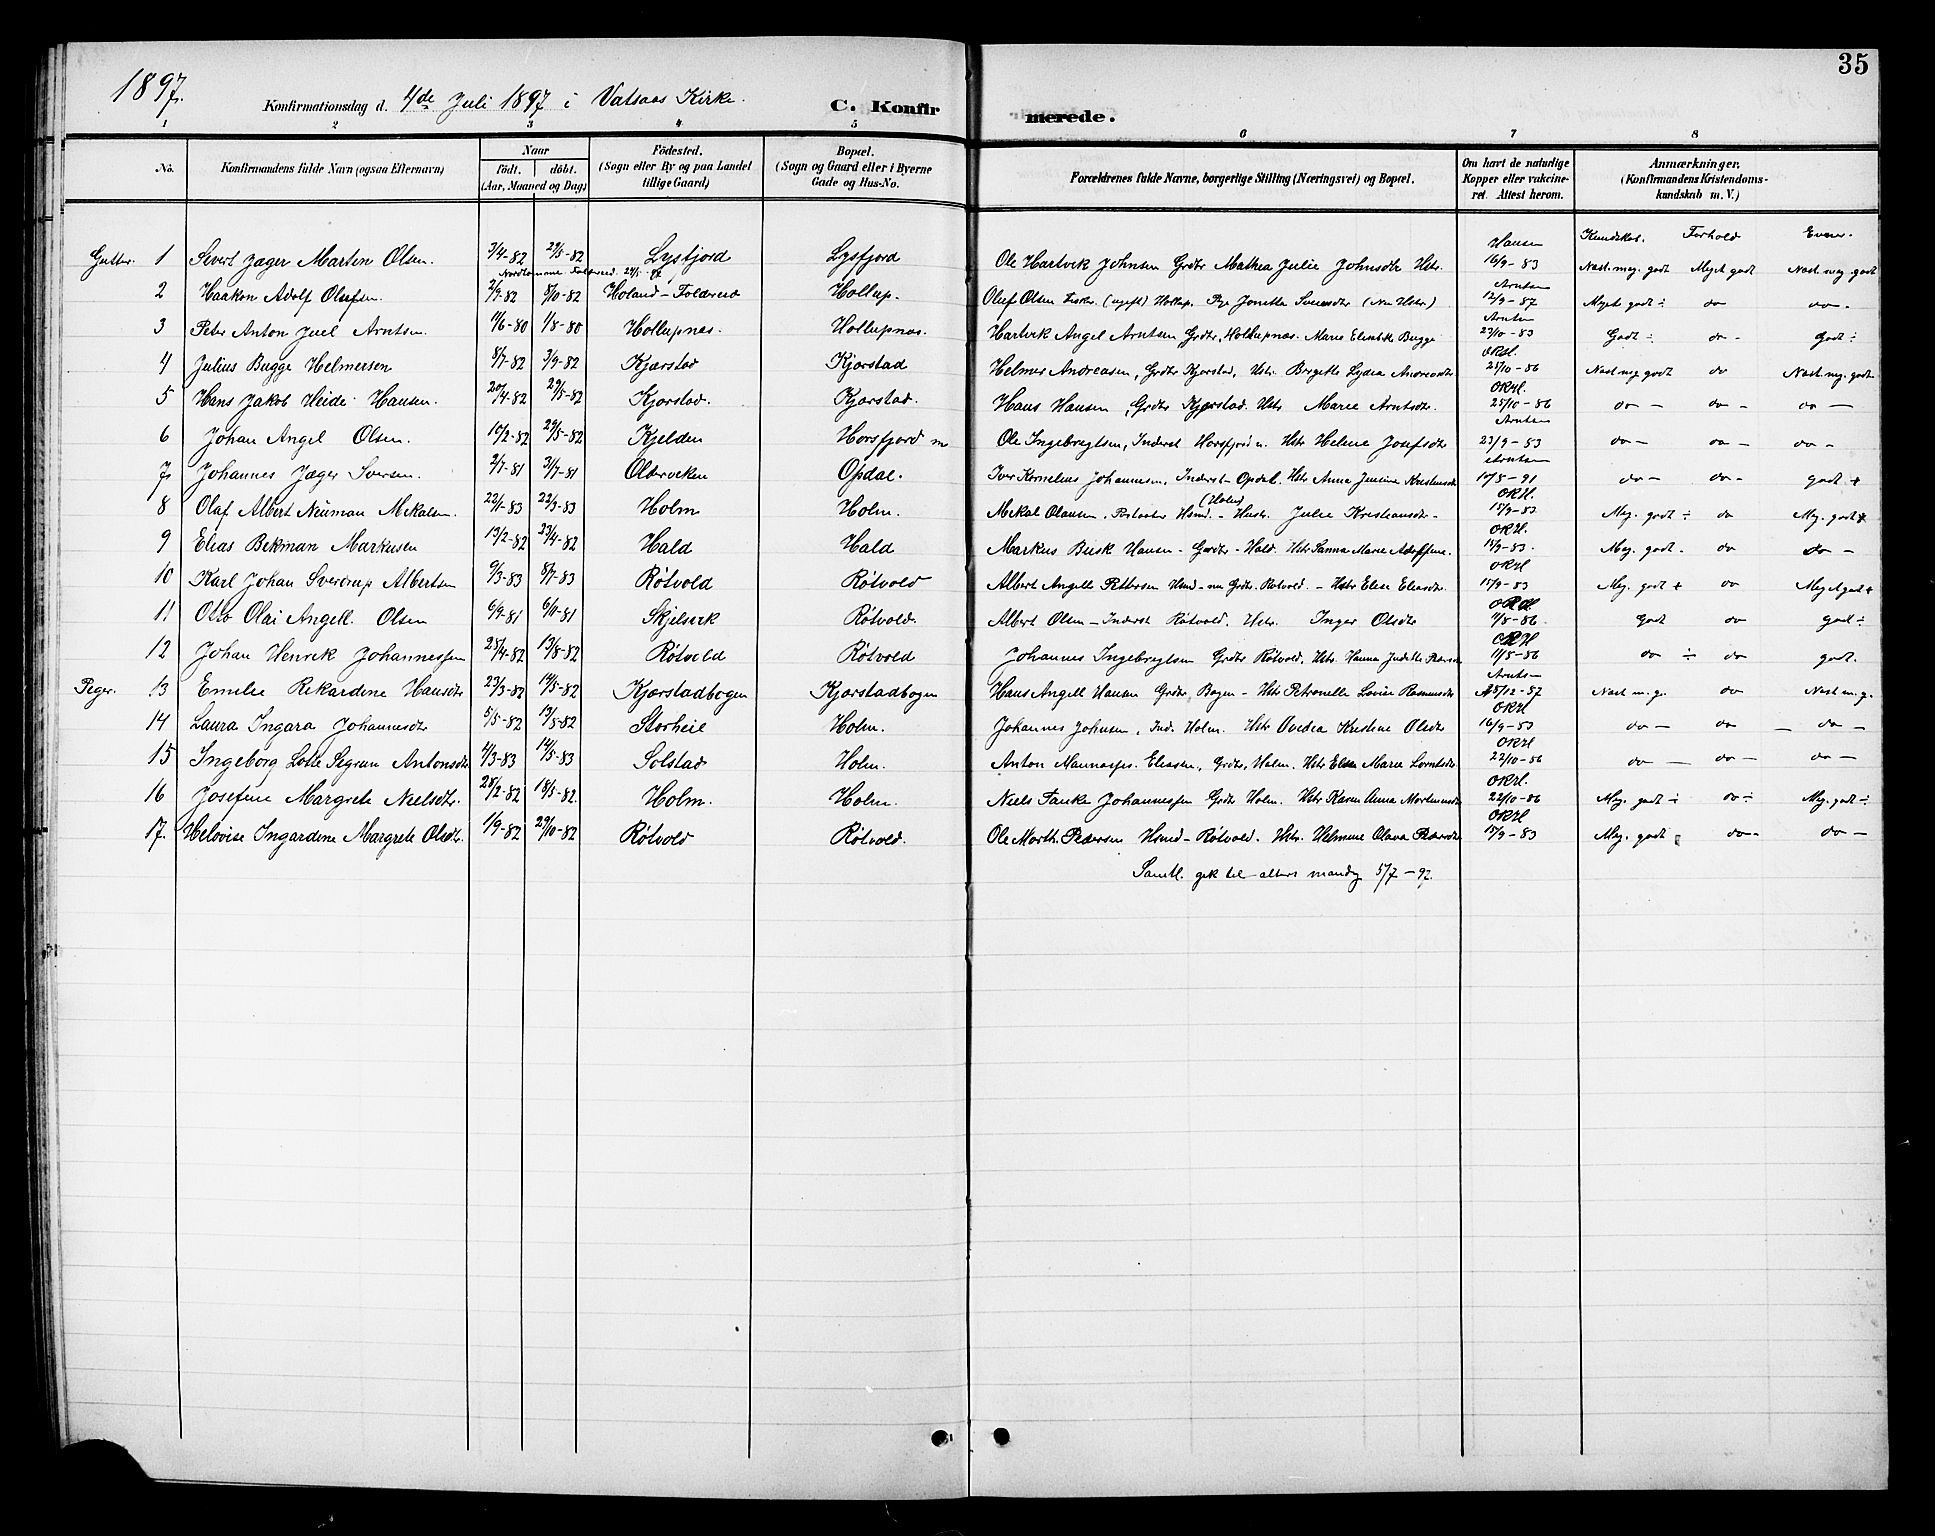 35
1897.
Konfirmationsdag d. 4de Juli 1897 i Vatsaas Kirke. C. Konfirmerede.
1 2 3 4 5 6 7 8
No. Konfirmandens fulde Navn (ogsaa Efternavn) Naar født. døbt. (Aar, Maaned og Dag) Fødested. (Sogn eller By og paa Landet tillige Gaard) Bopæl. (Sogn og Gaard eller i Byerne Gade og Hus-No. Forældrenes fulde Navne, borgerlige Stilling (Næringsvei) og Bopæl. Om havt de naturlige Kopper eller vakcineret. Attest herom. Anmærkninger. (Konfirmandens Kristendomskundskab m. V.)
Kundskab. Forhold Evner.
Gutter. 1 Sivert Jæger Martin Olsen. 3/4-82 29/5-82 Lysfjord Lysfjord Ole Hartvik Johnsen Grdbr Mathea Julie Johnsdtr Hstr. Hansen 16/9-83 Næst. meg. godt Meget godt Næst. meg. godt
2 Haakon Adolf Olufsen. 2/9-82 8/10-82 Høland-Foldereid Hollup. Oluf Olsen Fisker. (ugift) Hollup. Pige Jonette Arntsen 12/9-87 Meget godt ÷ do do-
3 Peter Anton Juel Arntsen. 11/6-80 1/8-80 Hollupnæs. Hollupnæs. Hartvik Angel Arntsen Grdbr, Hollupnæs. Marie Bugge Arntsen 23/10-83 Godt ÷ do- Godt ÷
4 Julius Bugge Helmersen 8/7-82 3/9-82 Kjærstad Kjærstad Helmer Andreasen, Grdbr Kjærstad, Hstr. Birgitte Lydia Andreasdtr OKH. 25/10-86 Næst meg. godt do Næst. mg. godt
5 Hans Jakob Heide Hansen. 20/4-82 29/5-82 Kjærstad. Kjærstad. Hans Hansen, Grdbr Kjærstad. Hstr Marie Arntsdtr. OKH. 25/10-86 do- do- do-
6 Johan Angel Olsen. 10/2-82 29/5-82 Kjelden Horsfjord m Ole Ingebregtsen, Inderst Horsfjord n. Hstr Helene Josefsdtr Arntsen 23/9-83 do- do- do-
7 Johannes Jæger Iversen. 2/7-81 31/7-81 Olterveken Opdal. Iver Kornelius Johannesen, Inderst Opdal. Hstr Anna Jensine Kristensdtr Arntsen 10/5-91 do- do- godt +
8 Olaf Albert Neuman Mekalsen. 22/1-83 22/3-83 Holm Holm. Mekal Olausen, Hsmd. (Holm) - Hustr. Julie Kristiansdtr- OKH. 15/9-83 Meg. godt ÷ do Meg. godt
9 Elias Bekman Markusen 13/2-82 23/4-82 Hald Hald Markus Busk Hansen - Grdbr - Hald. Hstr Sanna Marie OKH. 15/9-83. Meg. godt. do do-
10 Karl Johan Sverdrup Albertsen 9/3-83 8/7-83 Røtvold Røtvold Albert Angell Pettersen Hsmd - nu Grdbr. Røtvold. - Hstr Elise Eliasdtr. OKH 15/9-83 Meg. godt + do Meget godt +
11 Otto Olai Angell. Olsen 6/9-81 6/11-81 Skjelvik Røtvold. Albert Olsen - Inderst Røtvold. Hstr. Inger Olsdtr OKH. 11/5-86. Godt do godt ÷
12 Johan Henrik Johannessen 25/4-82 13/8-82 Røtvold Røtvold Johannes Ingebregtsen Grdbr Røtvold. Hstr. Hanna Judithe OKH 11/5-86 do ÷ do godt.
Piger. 13 Emilie Rikardine Hansdtr 23/3-82 14/5-82 Kjærstadbogen Kjærstadbogen Hans Angell Hansen Grdbr, Bogen - Hstr Petronelle Lovise Rasmusdtr Arntsen 25/12-87 Næst m. g. do Næst m. g.
14 Laura Ingara Johannesdtr 5/5-82 13/8-82 Storheil Holm. Johannes Johnsen, Ind. Holm. Hstr Ovedia Kristine Olsdtr OKH 16/9-83 do- do- do-
15 Ingeborg Lotte Sigrun Antonsdtr 4/3-83 14/5-83 Solstad Holm. Anton Mannasses Eliassen, Grdbr, Holm. Hstr Elen Marie Lorntsdtr. OKH 22/10-86 do- do- do-
16 Josefine Margrete Nielsdtr. 25/2-82 18/5-82. Holm. Holm. Niels Tanke Johannessen Grdbr Holm. Hstr Karen Anna Mortensdtr OKH. 22/10-86 Meg. godt ÷ do ÷ Meg. godt ÷
17. Helovise Ingardine Margrete Olsdtr. 1/9-82 29/10-82 Røtvold Røtvold. Ole Morth. Pedersen Hsmd - Røtvold. Hstr. Helmine Olava Pedersdtr OKH 15/9-83 Meg. godt do- do-
Samtl. gik til alters mandag 5/7-97.